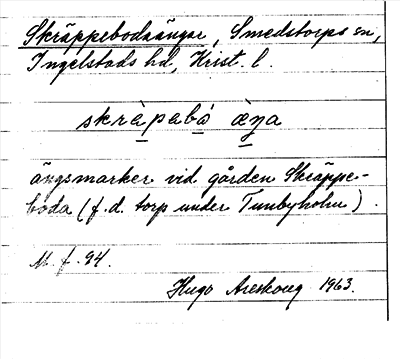 Skräppebodaängar, Smedstorps sn,
Ingelstads hd, Krist. l.
skràpabó àŋa
ängsmarker vid gården Skräppe-
boda (f.d. torp under Tunbyholm).
M. f. 94.
Hugo Areskoug 1963.